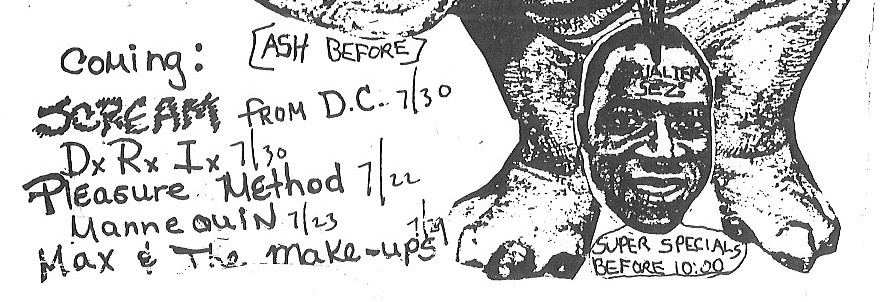 Coming: [ASH BEFORE]
SCREAM FROM D.C. 7/30
DxRxIx 7/30
Pleasure Method 7/22
MannequIN 7/23
Max & The Make-ups
WALTER
SEZ:
SUPER SPECIALS
BEFORE 10:00